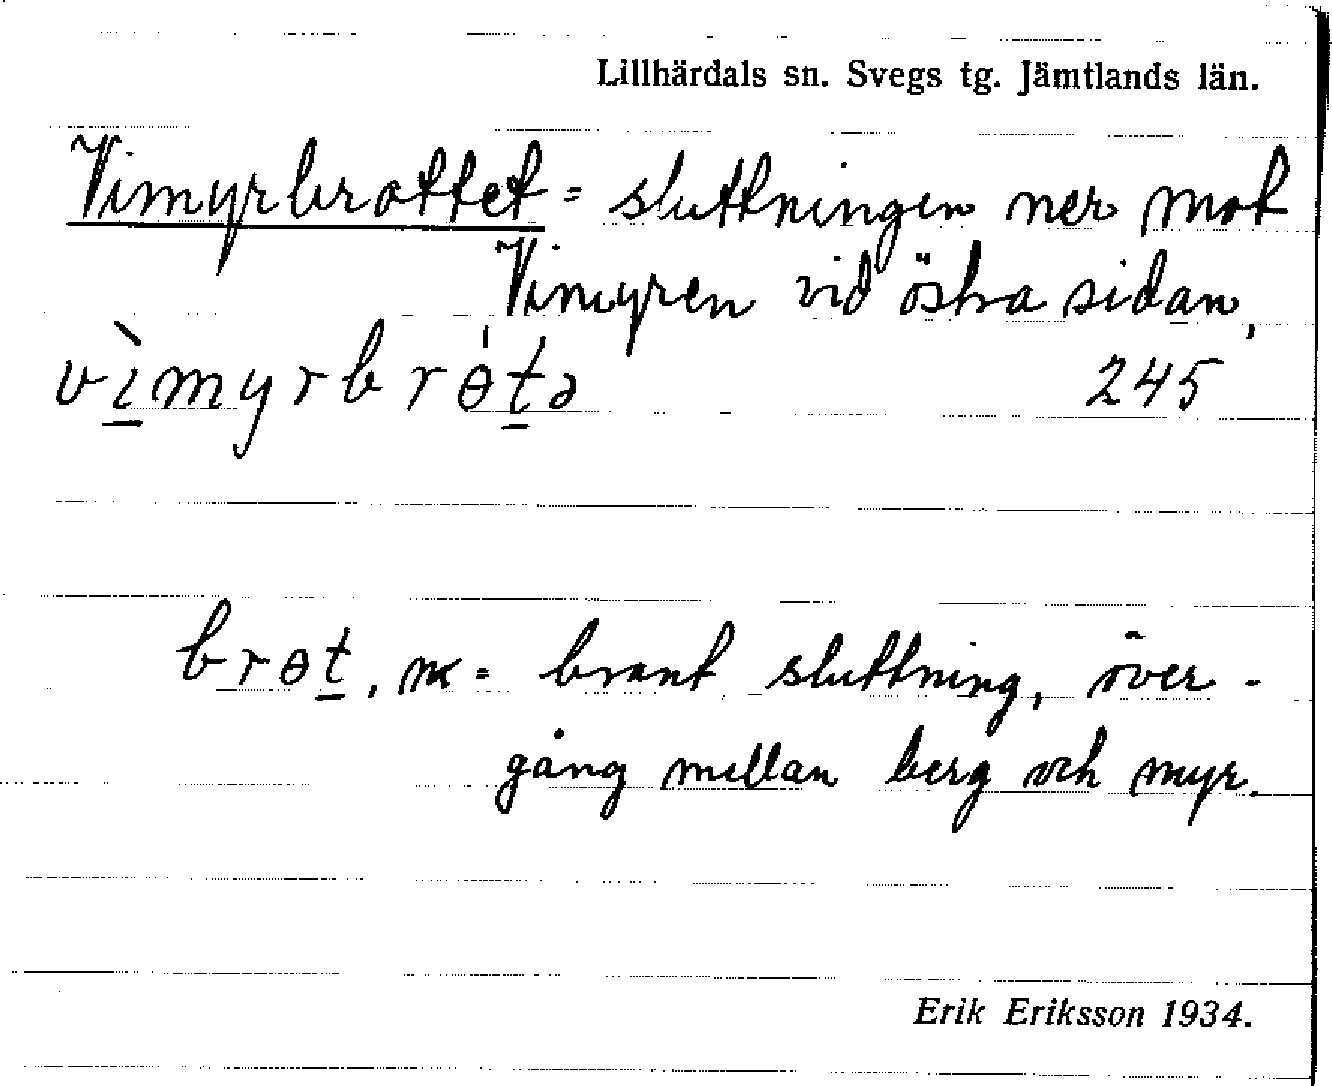 Lillhärdals sn. Svegs tg. Jämtlands län.
Vimyrbrottet = sluttningen ner mot
Vimyren vid östra sidan,
vìmyrbrɵ́tə 245
brɵt, n = brant sluttning, över-
gång mellan berg och myr.
Erik Eriksson 1934.